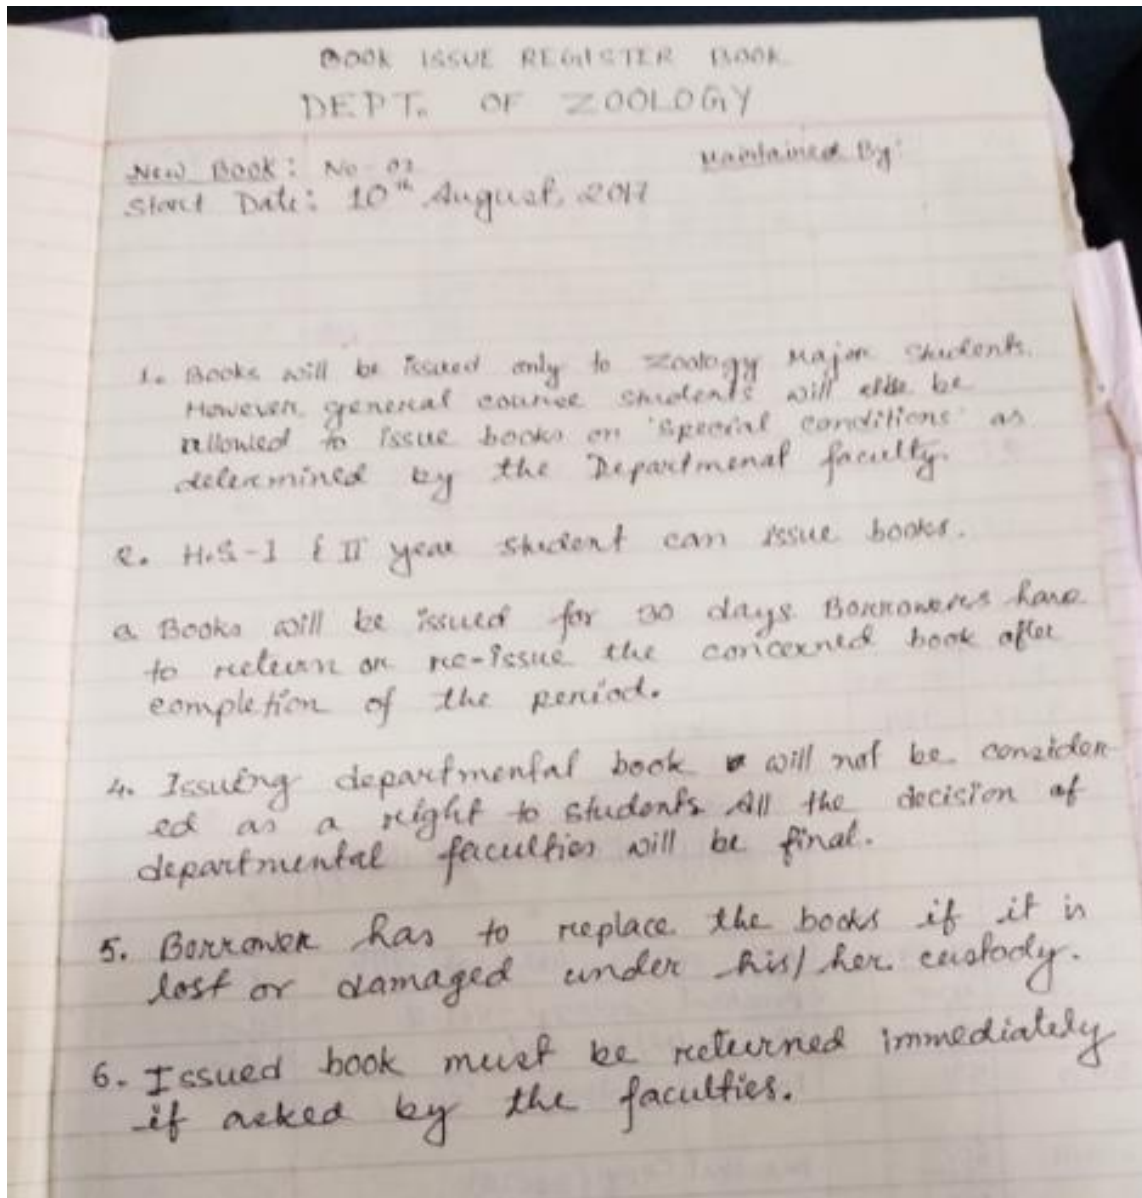 BOOK ISSUE REGISTER BOOK
DEPT. OF ZOOLOGY
New Book: No - 02
Maintained By:
Start Date: 10th August, 2017
1. Books will be issued only to Zoology Major Students.
However, general course students will also be
allowed to issue books on 'special conditions' as
determined by the Departmenal faculty.
2. H.S-I & II year student can issue books.
3. Books will be issued for 30 days. Borrowers have
to return or re-issue the concerned book after
completion of the period.
4. Issuing departmental book will not be consider-
ed as a right to students. All the decision of
departmental faculties will be final.
5. Borrower has to replace the books if it is
lost or damaged under his/her custody.
6. Issued book must be returned immediately
if asked by the faculties.